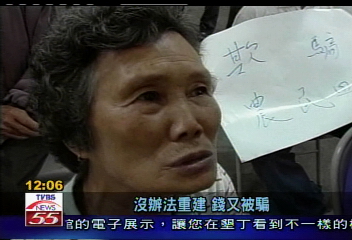 欺騙
農民
12:06
沒辦法重建 錢又被騙
TVBS
NEWS
55
館的電子展示，讓您在墾丁看到不一樣的